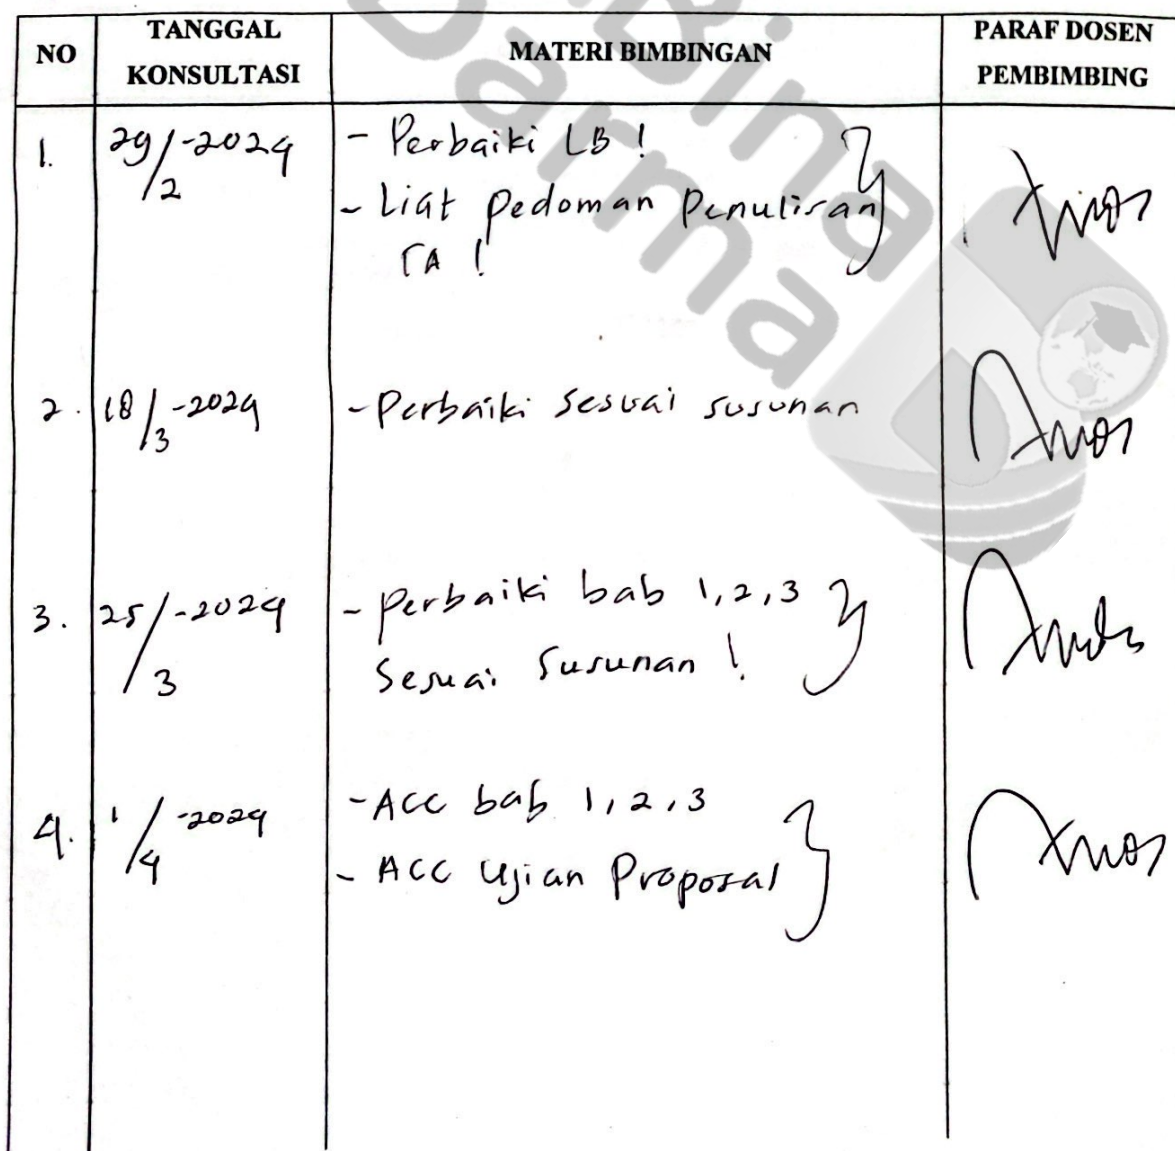 NO
TANGGAL
KONSULTASI
MATERI BIMBINGAN
PARAF DOSEN
PEMBIMBING
1.
29/2-2024
- Perbaiki LB !
- Liat Pedoman Penulisan
TA !
2.
18/3-2024
- Perbaiki sesuai susunan
3.
25/3-2024
- Perbaiki bab 1, 2, 3
Sesuai Susunan !
4.
1/4-2024
- Acc bab 1, 2, 3
- Acc Ujian Proposal
Bina
Darma